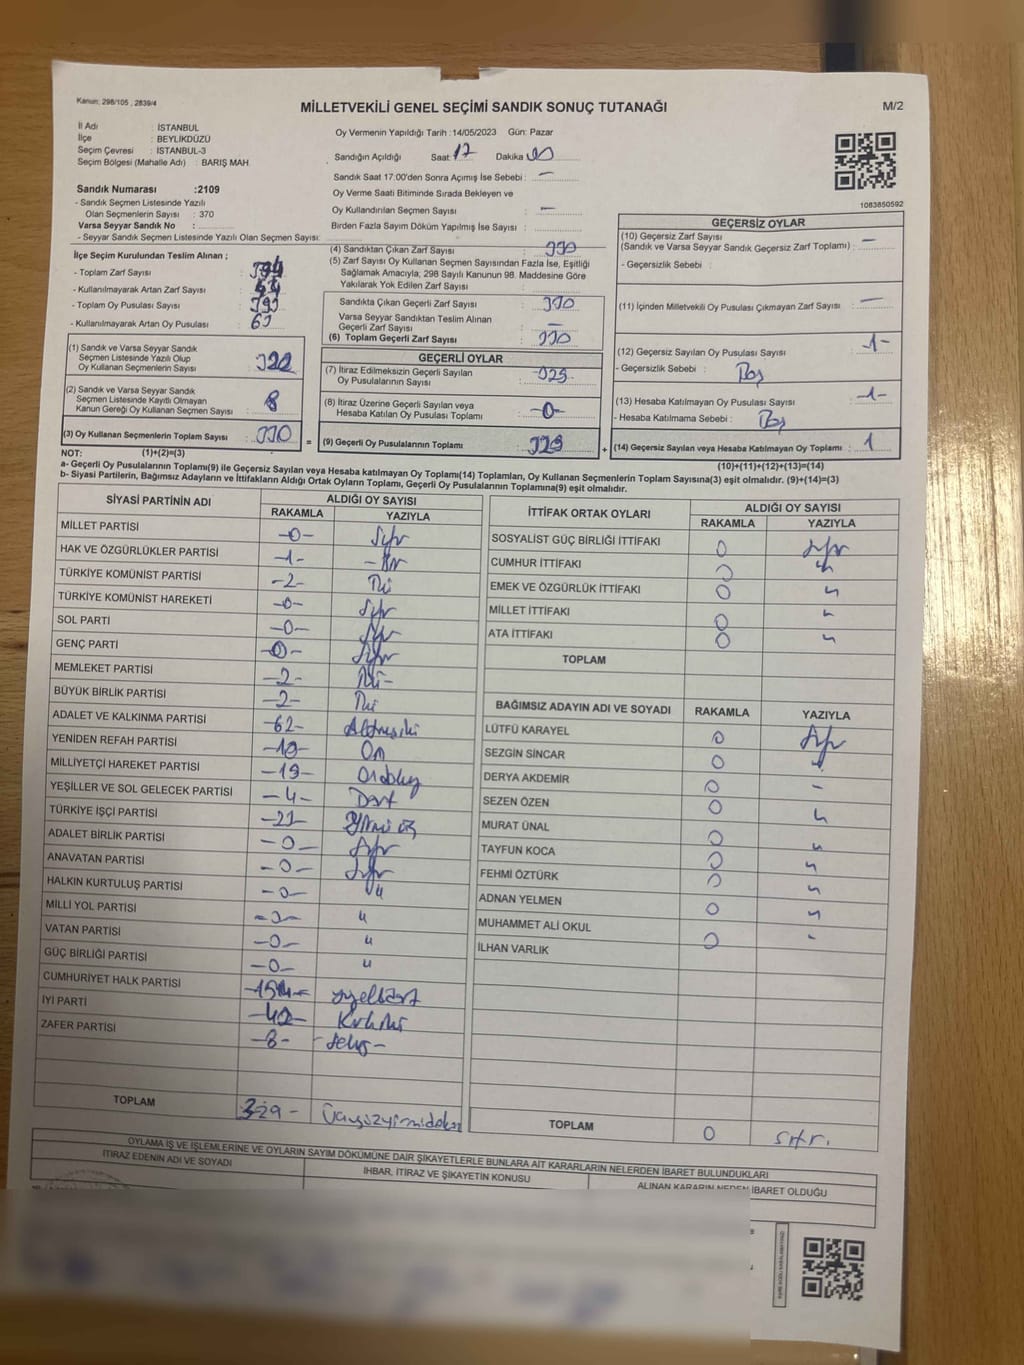 Kanun; 298/105 , 2839/4
MİLLETVEKİLİ GENEL SEÇİMİ SANDIK SONUÇ TUTANAĞI
M/2
İl Adı : İSTANBUL
İlçe : BEYLİKDÜZÜ
Seçim Çevresi : İSTANBUL-3
Seçim Bölgesi (Mahalle Adı) : BARIŞ MAH.
Sandık Numarası :2109
- Sandık Seçmen Listesinde Yazılı
Olan Seçmenlerin Sayısı : 370
Varsa Seyyar Sandık No :
- Seyyar Sandık Seçmen Listesinde Yazılı Olan Seçmen Sayısı:
Oy Vermenin Yapıldığı Tarih :14/05/2023 Gün: Pazar
Sandığın Açıldığı Saat: 17 Dakika
Sandık Saat 17:00'den Sonra Açımış İse Sebebi : —
Oy Verme Saati Bitiminde Sırada Bekleyen ve
Oy Kullandırılan Seçmen Sayısı : —
Birden Fazla Sayım Döküm Yapılmış İse Sayısı :
1083850592
İlçe Seçim Kurulundan Teslim Alınan ;
- Toplam Zarf Sayısı :
- Kullanılmayarak Artan Zarf Sayısı :
- Toplam Oy Pusulası Sayısı :
- Kullanılmayarak Artan Oy Pusulası :
(1) Sandık ve Varsa Seyyar Sandık
Seçmen Listesinde Yazılı Olup
Oy Kullanan Seçmenlerin Sayısı : 322
(2) Sandık ve Varsa Seyyar Sandık
Seçmen Listesinde Kayıtlı Olmayan
Kanun Gereği Oy Kullanan Seçmen Sayısı : 8
(3) Oy Kullanan Seçmenlerin Toplam Sayısı : 330
(4) Sandıktan Çıkan Zarf Sayısı : 330
(5) Zarf Sayısı Oy Kullanan Seçmen Sayısından Fazla İse, Eşitliği
Sağlamak Amacıyla, 298 Sayılı Kanunun 98. Maddesine Göre
Yakılarak Yok Edilen Zarf Sayısı :
Sandıkta Çıkan Geçerli Zarf Sayısı : 330
Varsa Seyyar Sandıktan Teslim Alınan
Geçerli Zarf Sayısı : —
(6) Toplam Geçerli Zarf Sayısı : 330
GEÇERLİ OYLAR
(7) İtiraz Edilmeksizin Geçerli Sayılan
Oy Pusulalarının Sayısı : 329
(8) İtiraz Üzerine Geçerli Sayılan veya
Hesaba Katılan Oy Pusulası Toplamı : -0-
= (9) Geçerli Oy Pusulalarının Toplamı : 329
GEÇERSİZ OYLAR
(10) Geçersiz Zarf Sayısı
(Sandık ve Varsa Seyyar Sandık Geçersiz Zarf Toplamı) : —
- Geçersizlik Sebebi :
(11) İçinden Milletvekili Oy Pusulası Çıkmayan Zarf Sayısı : —
(12) Geçersiz Sayılan Oy Pusulası Sayısı : -1-
- Geçersizlik Sebebi : Boş
(13) Hesaba Katılmayan Oy Pusulası Sayısı : -1-
- Hesaba Katılmama Sebebi : Boş
+ (14) Geçersiz Sayılan veya Hesaba Katılmayan Oy Toplamı : 1
NOT: (1)+(2)=(3)
(10)+(11)+(12)+(13)=(14)
a- Geçerli Oy Pusulalarının Toplamı(9) ile Geçersiz Sayılan veya Hesaba katılmayan Oy Toplamı(14) Toplamları, Oy Kullanan Seçmenlerin Toplam Sayısına(3) eşit olmalıdır. (9)+(14)=(3)
b- Siyasi Partilerin, Bağımsız Adayların ve İttifakların Aldığı Ortak Oyların Toplamı, Geçerli Oy Pusulalarının Toplamına(9) eşit olmalıdır.
SİYASİ PARTİNİN ADI ALDIĞI OY SAYISI
RAKAMLA YAZIYLA
MİLLET PARTİSİ -0- Sıfır
HAK VE ÖZGÜRLÜKLER PARTİSİ -1- -Bir
TÜRKİYE KOMÜNİST PARTİSİ -2- İki
TÜRKİYE KOMÜNİST HAREKETİ -0- Sıfır
SOL PARTİ -0- Sıfır
GENÇ PARTİ -0- Sıfır
MEMLEKET PARTİSİ -2- İki-
BÜYÜK BİRLİK PARTİSİ -2- İki
ADALET VE KALKINMA PARTİSİ -62- Altmışiki
YENİDEN REFAH PARTİSİ -10- On
MİLLİYETÇİ HAREKET PARTİSİ -19- Ondokuz
YEŞİLLER VE SOL GELECEK PARTİSİ -4- Dört
TÜRKİYE İŞÇİ PARTİSİ
ADALET BİRLİK PARTİSİ -0- Sıfır
ANAVATAN PARTİSİ -0- Sıfır
HALKIN KURTULUŞ PARTİSİ -0- "
MİLLİ YOL PARTİSİ -0- "
VATAN PARTİSİ -0- "
GÜÇ BİRLİĞİ PARTİSİ -0- "
CUMHURİYET HALK PARTİSİ
İYİ PARTİ -42- Kırkiki
ZAFER PARTİSİ -8- -Sekiz-
TOPLAM 329- Üçyüzyirmidokuz
İTTİFAK ORTAK OYLARI ALDIĞI OY SAYISI
RAKAMLA YAZIYLA
SOSYALİST GÜÇ BİRLİĞİ İTTİFAKI 0 Sıfır
CUMHUR İTTİFAKI 0 "
EMEK VE ÖZGÜRLÜK İTTİFAKI 0 "
MİLLET İTTİFAKI 0 "
ATA İTTİFAKI 0 "
TOPLAM
BAĞIMSIZ ADAYIN ADI VE SOYADI RAKAMLA YAZIYLA
LÜTFÜ KARAYEL 0 Sıfır
SEZGİN SİNCAR 0 "
DERYA AKDEMİR 0 "
SEZEN ÖZEN 0 "
MURAT ÜNAL 0 "
TAYFUN KOCA 0 "
FEHMİ ÖZTÜRK 0 "
ADNAN YELMEN 0 "
MUHAMMET ALİ OKUL 0 "
İLHAN VARLIK
TOPLAM 0 Sıfır.
OYLAMA İŞ VE İŞLEMLERİNE VE OYLARIN SAYIM DÖKÜMÜNE DAİR ŞİKAYETLERLE BUNLARA AİT KARARLARIN NELERDEN İBARET BULUNDUKLARI
İTİRAZ EDENİN ADI VE SOYADI
İHBAR, İTİRAZ VE ŞİKAYETİN KONUSU
ALINAN KARARIN NEDEN İBARET OLDUĞU